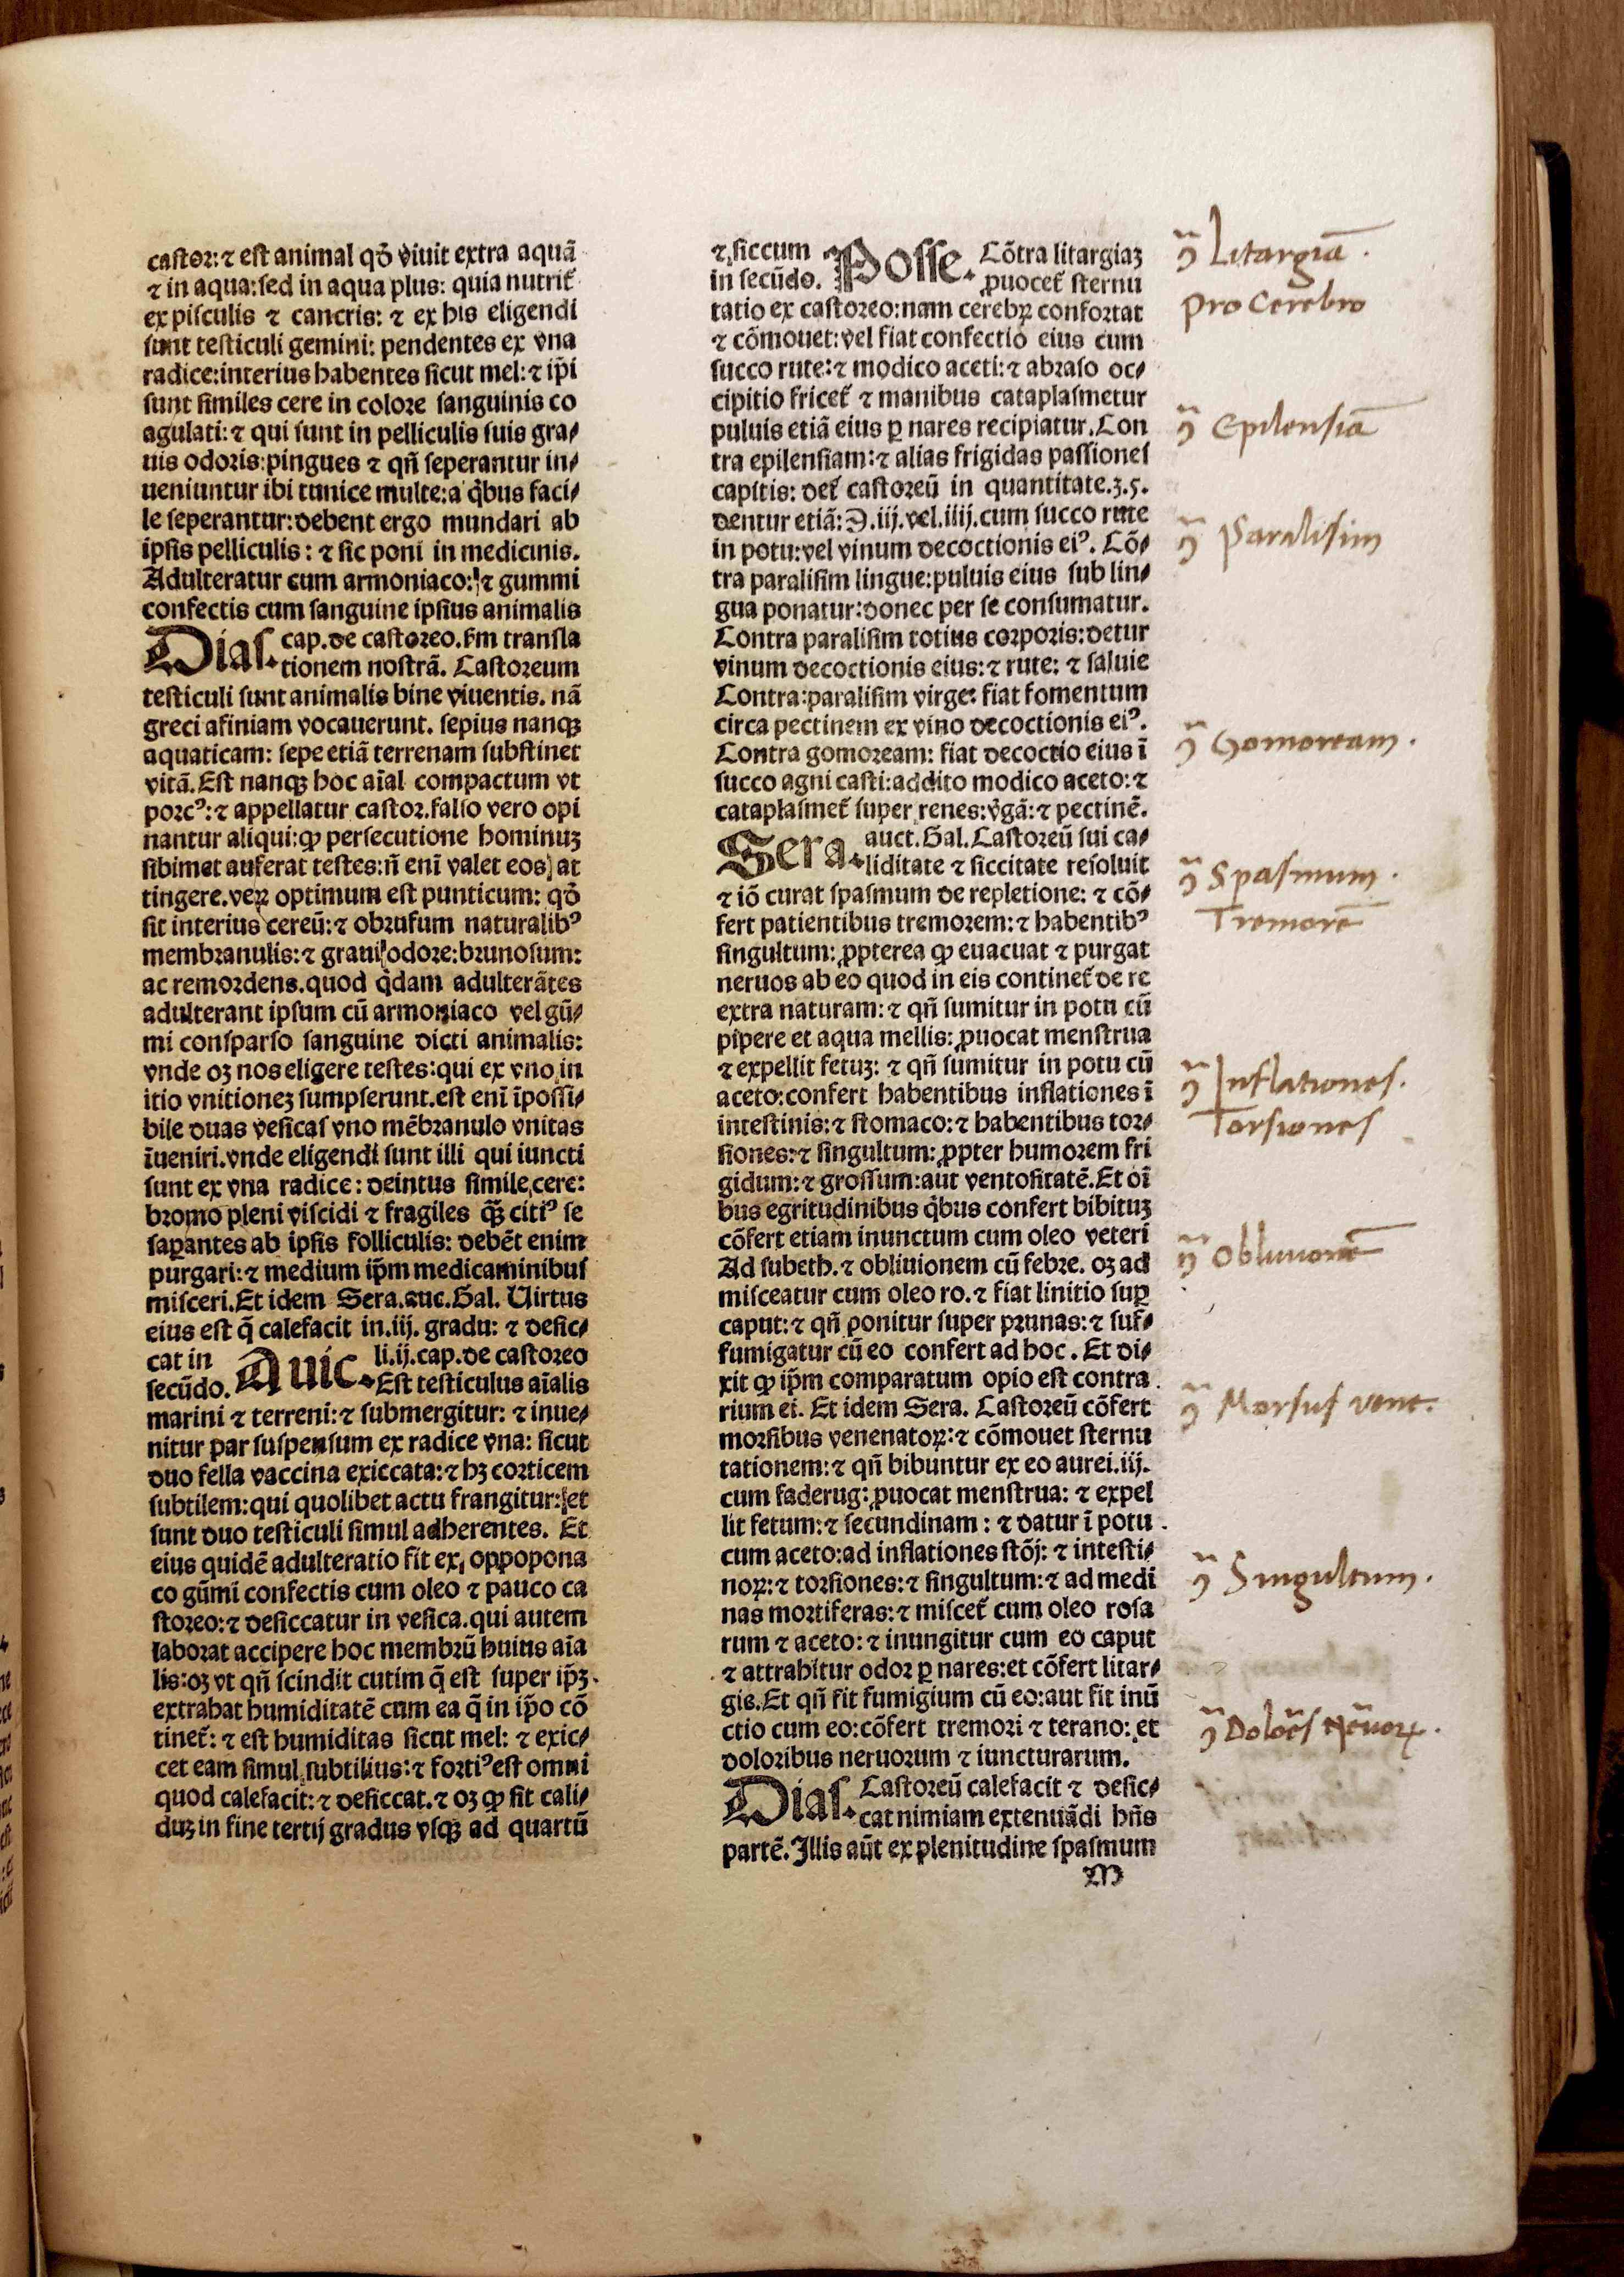 castor: ⁊ est animal qđ viuit extra aquā
⁊ in aqua: sed in aqua plus: quia nutrit᷑
ex pisculis ⁊ cancris: ⁊ ex his eligendi
sunt testiculi gemini: pendentes ex vna
radice: interius habentes sicut mel: ⁊ ip̄i
sunt similes cere in colore sanguinis co
agulati: ⁊ qui sunt in pelliculis suis gra⸗
uis odoris: pingues ⁊ qn̄ seperantur in⸗
ueniuntur ibi tunice multe: a q̇bus faci⸗
le seperantur: debent ergo mundari ab
ipsis pelliculis: ⁊ sic poni in medicinis.
Adulteratur cum armoniaco: ⁊ gummi
confectis cum sanguine ipsius animalis
Dias. cap. de castoreo. fm transla
tionem nostrā. Castoreum
testiculi sunt animalis bine viuentis. nā
greci afiniam vocauerunt. sepius nanqꝫ
aquaticam: sepe etiā terrenam substinet
vitā. Est nanqꝫ hoc aīal compactum vt
porcꝰ: ⁊ appellatur castor. falso vero opi
nantur aliqui: ꝙ persecutione hominuꝫ
sibimet auferat testes: n̄ enī valet eos at
tingere. veꝝ optimum est punticum: qđ
sit interius cereū: ⁊ obrufum naturalibꝰ
membranulis: ⁊ graui odore: brunosum:
ac remordens. quod q̇dam adulterātes
adulterant ipsum cū armoniaco vel gū⸗
mi consparso sanguine dicti animalis:
vnde oꝫ nos eligere testes: qui ex vno in
itio vnitioneꝫ sumpserunt. est enī īpossi⸗
bile duas vesicas vno mēbranulo vnitas
īueniri. vnde eligendi sunt illi qui iuncti
sunt ex vna radice: deintus simile cere:
bromo pleni viscidi ⁊ fragiles q̄ꝫ citiꝰ se
sapantes ab ipsis folliculis: debēt enim
purgari: ⁊ medium ip̄m medicaminibus
misceri. Et idem Sera. auc. Gal. Uirtus
eius est q̄ calefacit in. iij. gradu: ⁊ desic⸗
cat in
secūdo. Auic. li. ij. cap. de castoreo
Est testiculus aīalis
marini ⁊ terreni: ⁊ submergitur: ⁊ inue⸗
nitur par suspensum ex radice vna: sicut
duo fella vaccina exiccata: ⁊ hꝫ corticem
subtilem: qui quolibet actu frangitur: et
sunt duo testiculi simul adherentes. Et
eius quidē adulteratio fit ex oppopona
co gūmi confectis cum oleo ⁊ pauco ca
storeo: ⁊ desiccatur in vesica. qui autem
laborat accipere hoc membrū huius aīa
lis: oꝫ vt qn̄ scindit cutim q̄ est super ip̄ꝫ
extrahat humiditatē cum ea q̄ in ip̄o cō
tinet᷑: ⁊ est humiditas sicut mel: ⁊ exic⸗
cet eam simul subtilius: ⁊ fortiꝰ est omni
quod calefacit: ⁊ desiccat. ⁊ oꝫ ꝙ sit cali⸗
duꝫ in fine tertij gradus vsqꝫ ad quartū
⁊ siccum
in secūdo. Posse. Cōtra litargiaꝫ
ꝓuocet᷑ sternu
tatio ex castoreo: nam cerebꝝ confortat
⁊ cōmouet: vel fiat confectio eius cum
succo rute: ⁊ modico aceti: ⁊ abraso oc⸗
cipitio fricet᷑ ⁊ manibus cataplasmetur
puluis etiā eius ꝑ nares recipiatur. Con
tra epilensiam: ⁊ alias frigidas passiones
capitis: det᷑ castoreū in quantitate. ʒ. 5.
dentur etiā: ℈. iij. vel. iiij. cum succo rute
in potu: vel vinum decoctionis eiꝰ. Cō⸗
tra paralisim lingue: puluis eius sub lin⸗
gua ponatur: donec per se consumatur.
Contra paralisim totius corporis: detur
vinum decoctionis eius: ⁊ rute: ⁊ saluie
Contra: paralisim virge: fiat fomentum
circa pectinem ex vino decoctionis eiꝰ.
Contra gomoream: fiat decoctio eius ī
succo agni casti: addito modico aceto: ⁊
cataplasmet᷑ super renes: v̓gā: ⁊ pectinē.
Sera. auct. Gal. Castoreū sui ca⸗
liditate ⁊ siccitate resoluit
⁊ iō curat spasmum de repletione: ⁊ cō⸗
fert patientibus tremorem: ⁊ habentibꝰ
singultum: ꝓpterea ꝙ euacuat ⁊ purgat
neruos ab eo quod in eis continet᷑ de re
extra naturam: ⁊ qn̄ sumitur in potu cū
pipere et aqua mellis: ꝓuocat menstrua
⁊ expellit fetuꝫ: ⁊ qn̄ sumitur in potu cū
aceto: confert habentibus inflationes ī
intestinis: ⁊ stomaco: ⁊ habentibus tor⸗
siones: ⁊ singultum: ꝓpter humorem fri
gidum: ⁊ grossum: aut ventositatē. Et oī
bus egritudinibus q̇bus confert bibituꝫ
cōfert etiam inunctum cum oleo veteri
Ad subeth. ⁊ obliuionem cū febre. oꝫ ad
misceatur cum oleo ro. ⁊ fiat linitio suꝑ
caput: ⁊ qn̄ ponitur super prunas: ⁊ suf⸗
fumigatur cū eo confert ad hoc. Et di⸗
xit ꝙ ip̄m comparatum opio est contra
rium ei. Et idem Sera. Castoreū cōfert
morsibus venenatoꝝ: ⁊ cōmouet sternu
tationem: ⁊ qn̄ bibuntur ex eo aurei. iij.
cum faderug: ꝓuocat menstrua: ⁊ expel
lit fetum: ⁊ secundinam: ⁊ datur ī potu
cum aceto: ad inflationes stōj: ⁊ intesti⸗
noꝝ: ⁊ torsiones: ⁊ singultum: ⁊ ad medi
nas mortiferas: ⁊ miscet᷑ cum oleo rosa
rum ⁊ aceto: ⁊ inungitur cum eo caput
⁊ attrahitur odor ꝑ nares: et cōfert litar⸗
gis. Et qn̄ fit fumigium cū eo: aut fit inū
ctio cum eo: cōfert tremori ⁊ terano: et
doloribus neruorum ⁊ iuncturarum.
Dias. Castoreū calefacit ⁊ desic⸗
cat nimiam extenuādi hn̄s
partē. Illis aūt ex plenitudine spasmum
M
ꝯ̃ Litargiā.
pro Cerebro
ꝯ̃ Epilensiā
ꝯ̃ Paralisim
ꝯ̃ Gomoream.
ꝯ̃ Spasmum.
Tremorē
ꝯ̃ Inflationes.
Torsiones
ꝯ̃ Obliuionē
ꝯ̃ Morsus vene.
ꝯ̃ Singultum.
ꝯ̃ Dolōes Neruoꝝ.